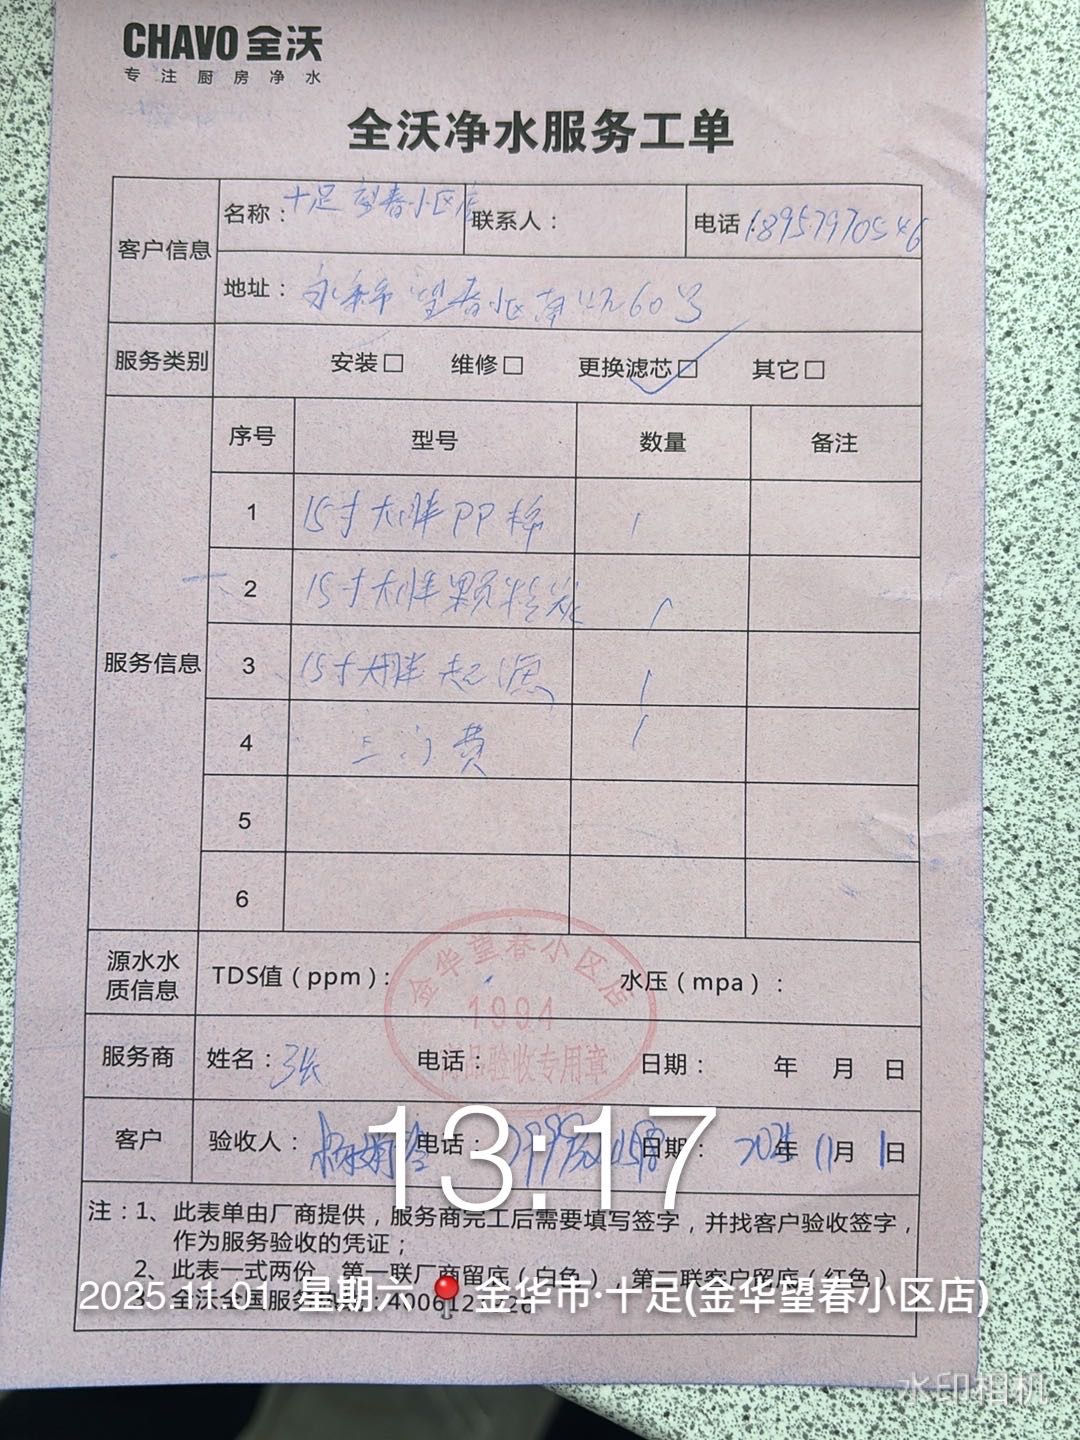 CHAVO 全沃
专注厨房净水
全沃净水服务工单
客户信息
名称：十足望春小区店 联系人： 电话 18957970546
地址： 望春小区南 60号
服务类别 安装□ 维修□ 更换滤芯□ 其它□
服务信息
序号 型号 数量 备注
1 15寸大胖PP棉 1
2 15寸大胖颗粒炭 1
3 15寸大胖超滤 1
4 上门费 1
5
6
源水水质信息 TDS值（ppm）： 水压（mpa）：
金华望春小区店
1994
商品验收专用章
服务商 姓名： 电话： 日期： 年 月 日
客户 验收人： 电话： 日期：2025年11月1日
13:17
注：1、此表单由厂商提供，服务商完工后需要填写签字，并找客户验收签字，
作为服务验收的凭证；
2、此表一式两份，第一联厂商留底（白色），第二联客户留底（红色）
3、全沃全国服务热线：
2025.11.01 星期六 金华市·十足(金华望春小区店)
水印相机